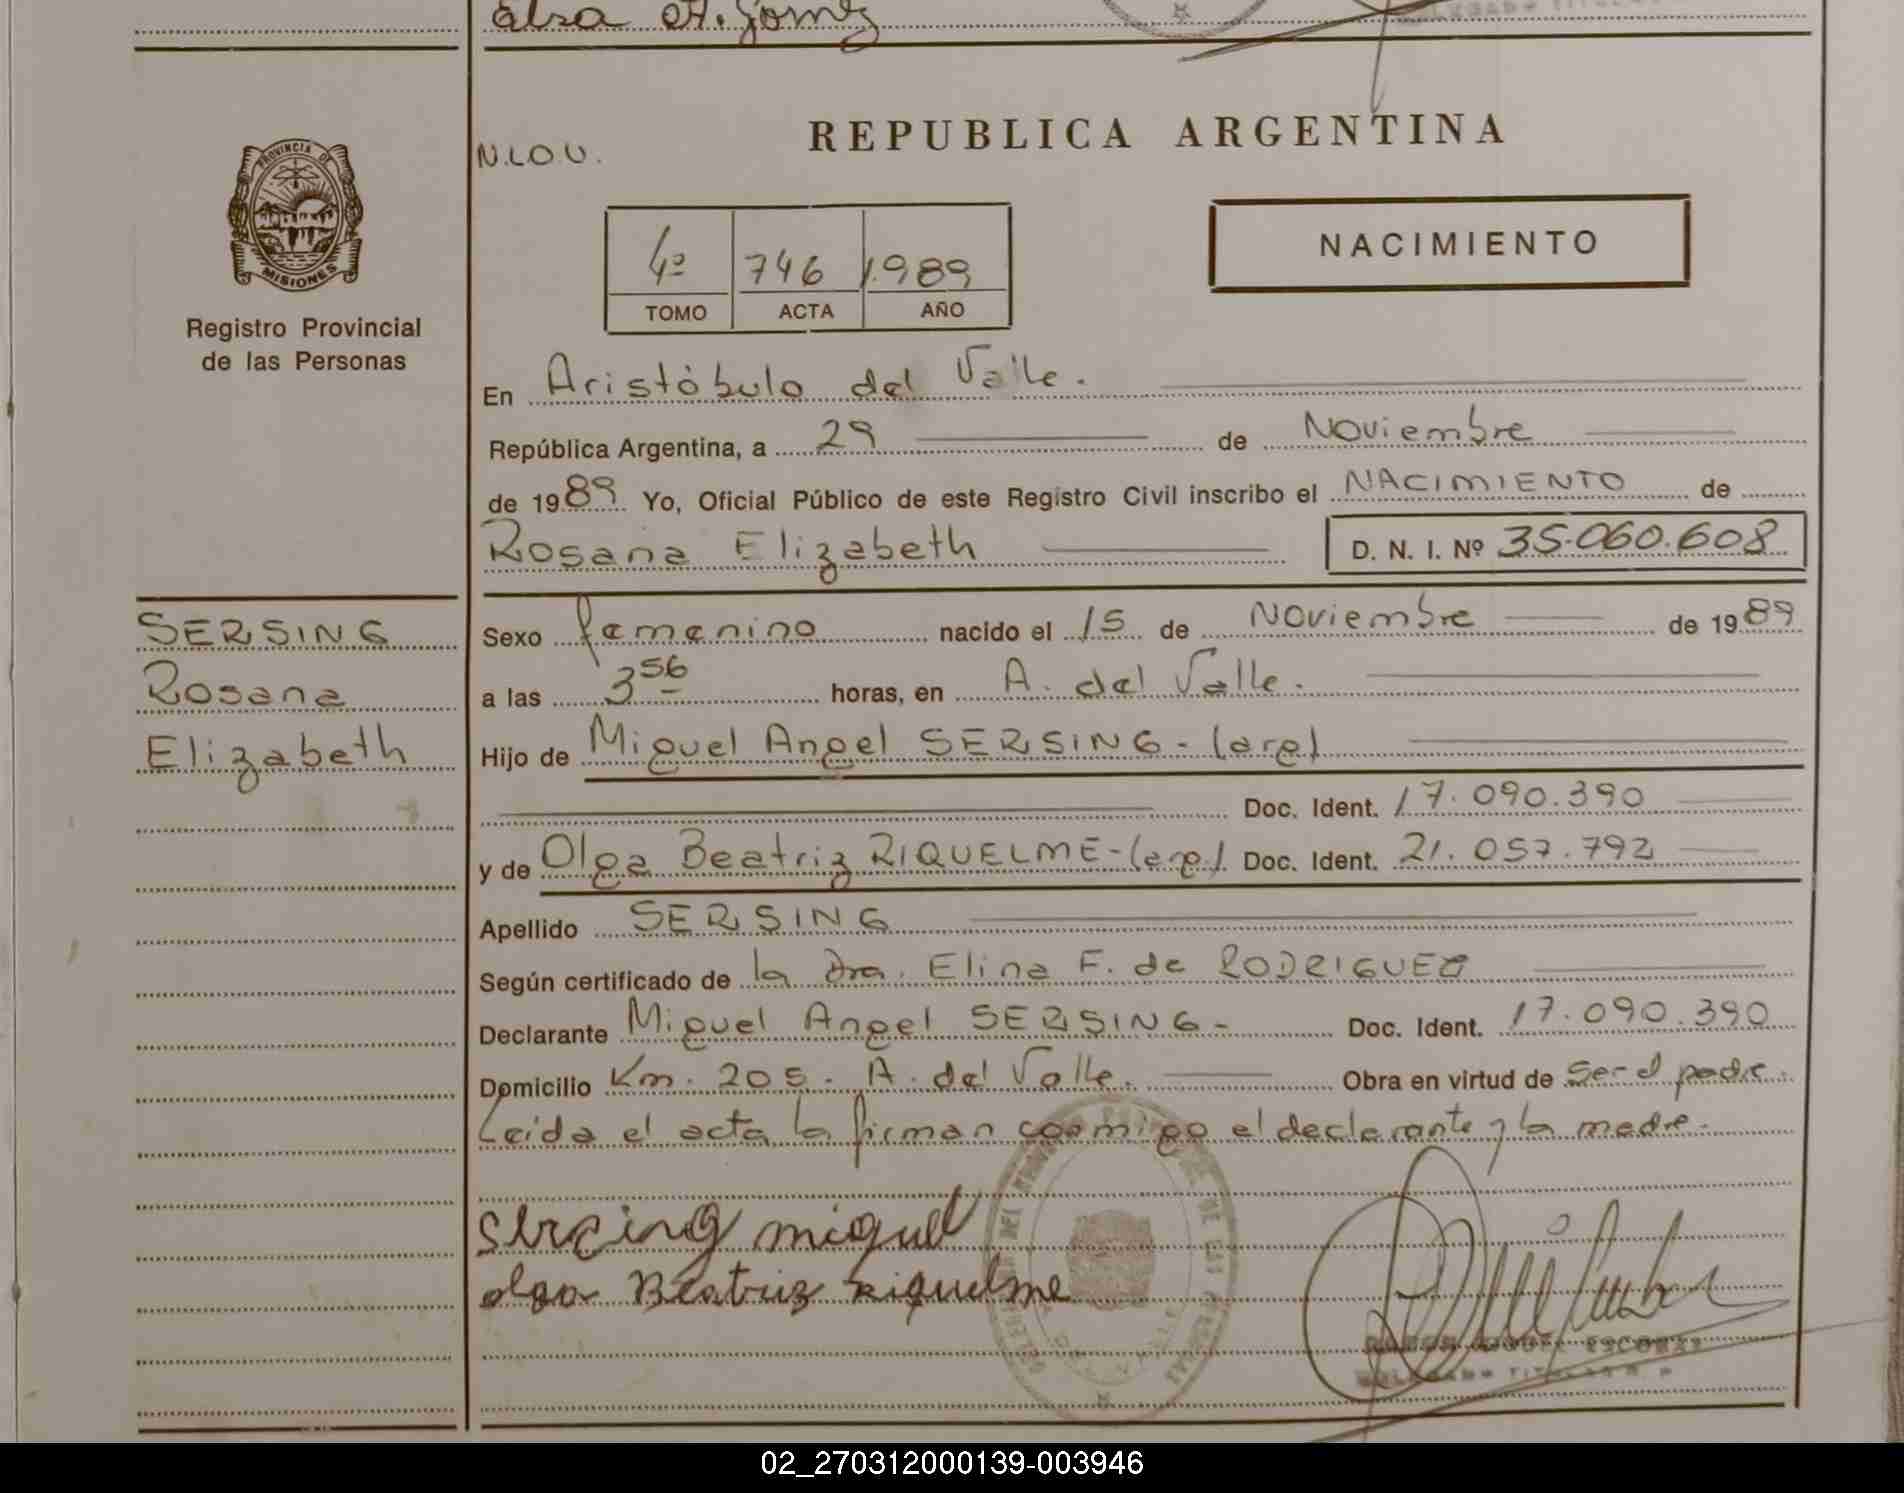 Elsa A. Gomez
PROVINCIA DE
MISIONES
Registro Provincial
de las Personas
N.L.O.U.
REPUBLICA ARGENTINA
NACIMIENTO
4º 746 1.989
TOMO ACTA AÑO
En Aristóbulo del Valle.
República Argentina, a 29 de Noviembre
de 1989 Yo, Oficial Público de este Registro Civil inscribo el NACIMIENTO de
Rosana Elizabeth D. N. I. Nº 35.060.608
SERSING
Rosana
Elizabeth
Sexo femenino nacido el 15 de Noviembre de 1989
a las 3 56 horas, en A. del Valle.
Hijo de Miguel Angel SERSING - (arg)
Doc. Ident. 17.090.390
y de Olga Beatriz RIQUELME - (arg) Doc. Ident. 21.057.792
Apellido SERSING
Según certificado de la Dra. Elina F. de RODRIGUEZ
Declarante Miguel Angel SERSING - Doc. Ident. 17.090.390
Domicilio Km. 205 - A. del Valle. Obra en virtud de ser el padre.
Leída el acta la firman conmigo el declarante y la madre.
Sersing miguel
olga Beatriz Riquelme
ESCOBAR
TITULAR
02_270312000139-003946